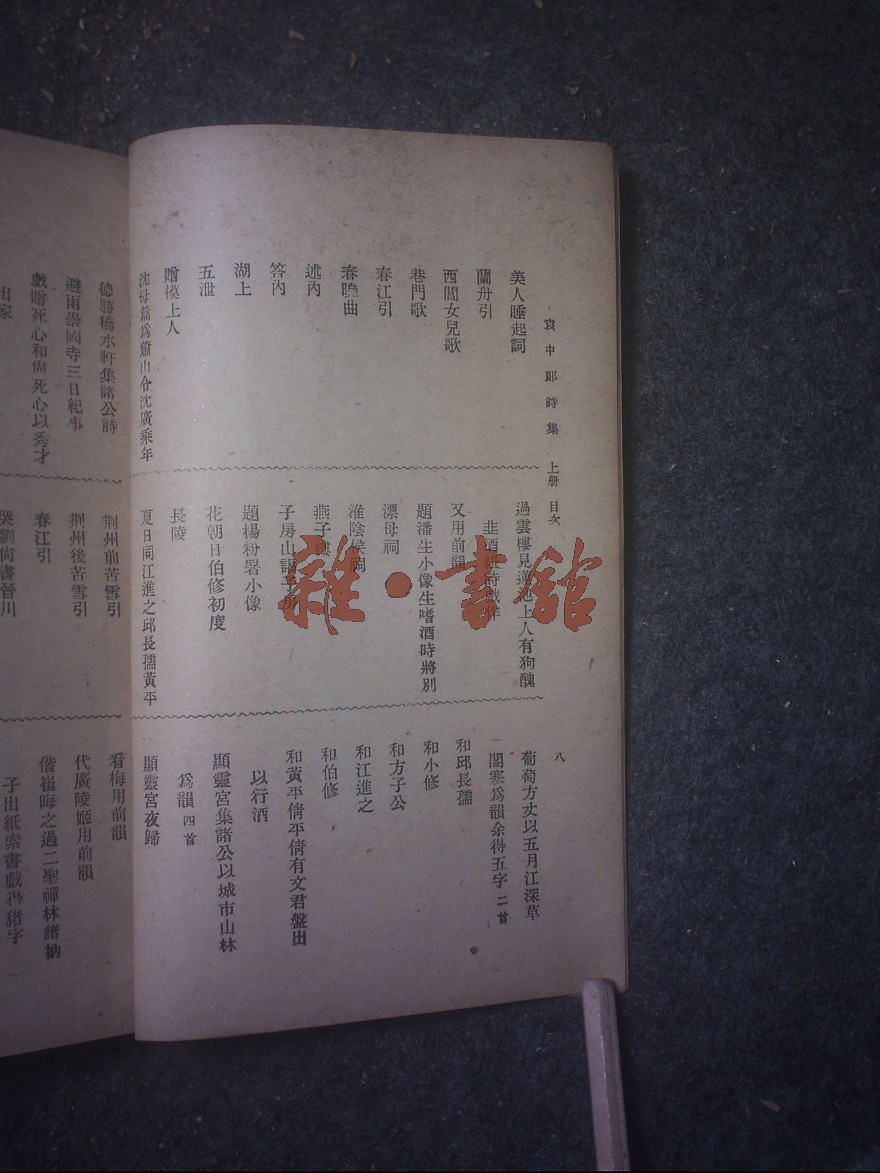 袁中郎詩集 上册 目次
八
美人睡起詞
蘭舟引
西閶女兒歌
巷門歌
春江引
春曉曲
述內
答內
湖上
五泄
贈模上人
沈母篇爲蕭山令沈廣乘年
過雲樓見蓮池上人有狗醜
韭酒紐詩戲作
又用前韻
題潘生小像生嗜酒時將別
漂母祠
淮陰侯祠
燕子樓
子房山謁子房
題楊粉署小像
花朝日伯修初度
長陵
夏日同江進之邱長孺黃平
葡萄方丈以五月江深草
閣寒爲韻余得五字 二首
和邱長孺
和小修
和方子公
和江進之
和伯修
和黃平倩平倩有文君盤出
以行酒
顯靈宮集諸公以城市山林
爲韻 四首
顯靈宮夜歸
德勝橋水軒集諸公詩
避雨崇國寺三日紀事
戲贈死心和尙死心以秀才
出家
荆州前苦雪引
荆州後苦雪引
春江引
哭劉尙書晉川
看梅用前韻
代廣陵姬用前韻
偕崔晦之過二聖禪林諸衲
子出紙索書戲得猪字
雜·書館